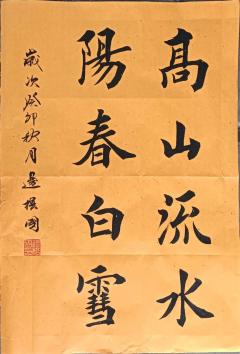 高山流水
陽春白雪
歲次癸卯秋月